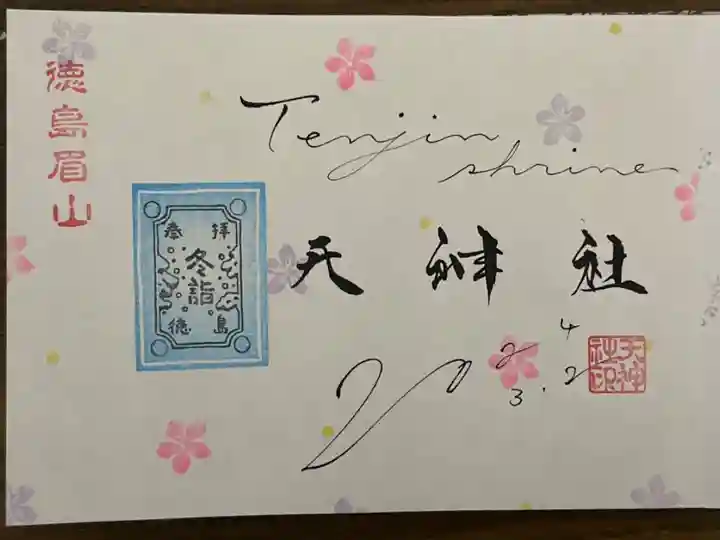 徳島眉山
Tenjin
shrine
天神社
奉拝
冬詣
徳島
4
2 2
3.
天神
社印